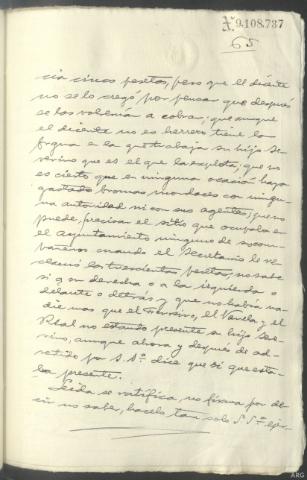 N. 9.108.787
65
cia cinco pesetas, pero que el dicente
no se lo creyó, por pensar que después
se las volverían a cobrar; que aunque
el dicente no es herrero tiene la
fragua en la que trabaja su hijo Se-
verino que es el que la explota; que no
es cierto que en ninguna ocasión haya
gastado bromas mordaces con ningu-
na autoridad ni con sus agentes; que no
puede precisar el sitio que ocupaba en
el Ayuntamiento ninguno de
cuando el Secretario le re-
clamó las trescientas pesetas, no sabe
si a su derecha o a la izquierda o
delante o detrás y que no había na-
die mas que el el Varela y el
Real no estando presente su hijo Se-
verino, aunque ahora y después de ad-
vertido por S. Sª. dice que si que esta-
ba presente.
Leida se ratifica, no firma por de-
cir no saber, hacelo tan solo S. Sª.
ARG